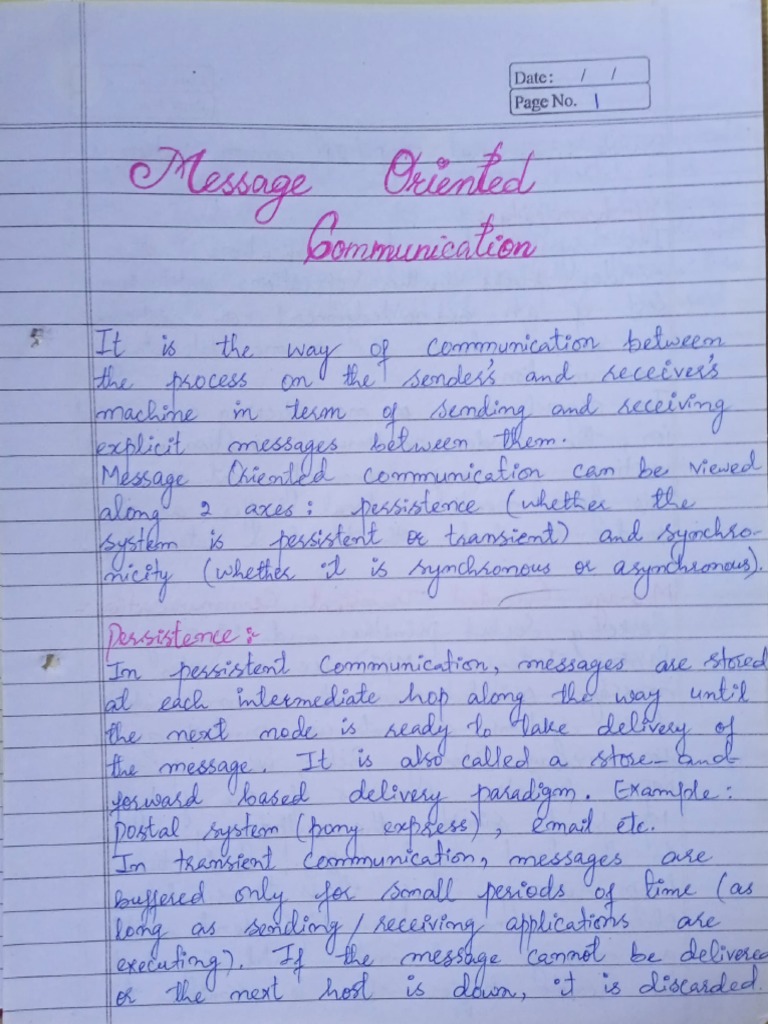 Date: / /
Page No. 1
Message Oriented
Communication
It is the way of communication between
the process on the sender's and receiver's
machine in term of sending and receiving
explicit messages between them.
Message Oriented communication can be viewed
along 2 axes: persistence (whether the
system is persistent or transient) and synchro-
nicity (whether it is synchronous or asynchronous).
Persistence:-
In persistent communication, messages are stored
at each intermediate hop along the way until
the next node is ready to take delivery of
the message. It is also called a store-and-
forward based delivery paradigm. Example:
Postal system (pony express), email etc.
In transient communication, messages are
buffered only for small periods of time (as
long as sending/receiving applications are
executing). If the message cannot be delivered
or the next host is down, it is discarded.